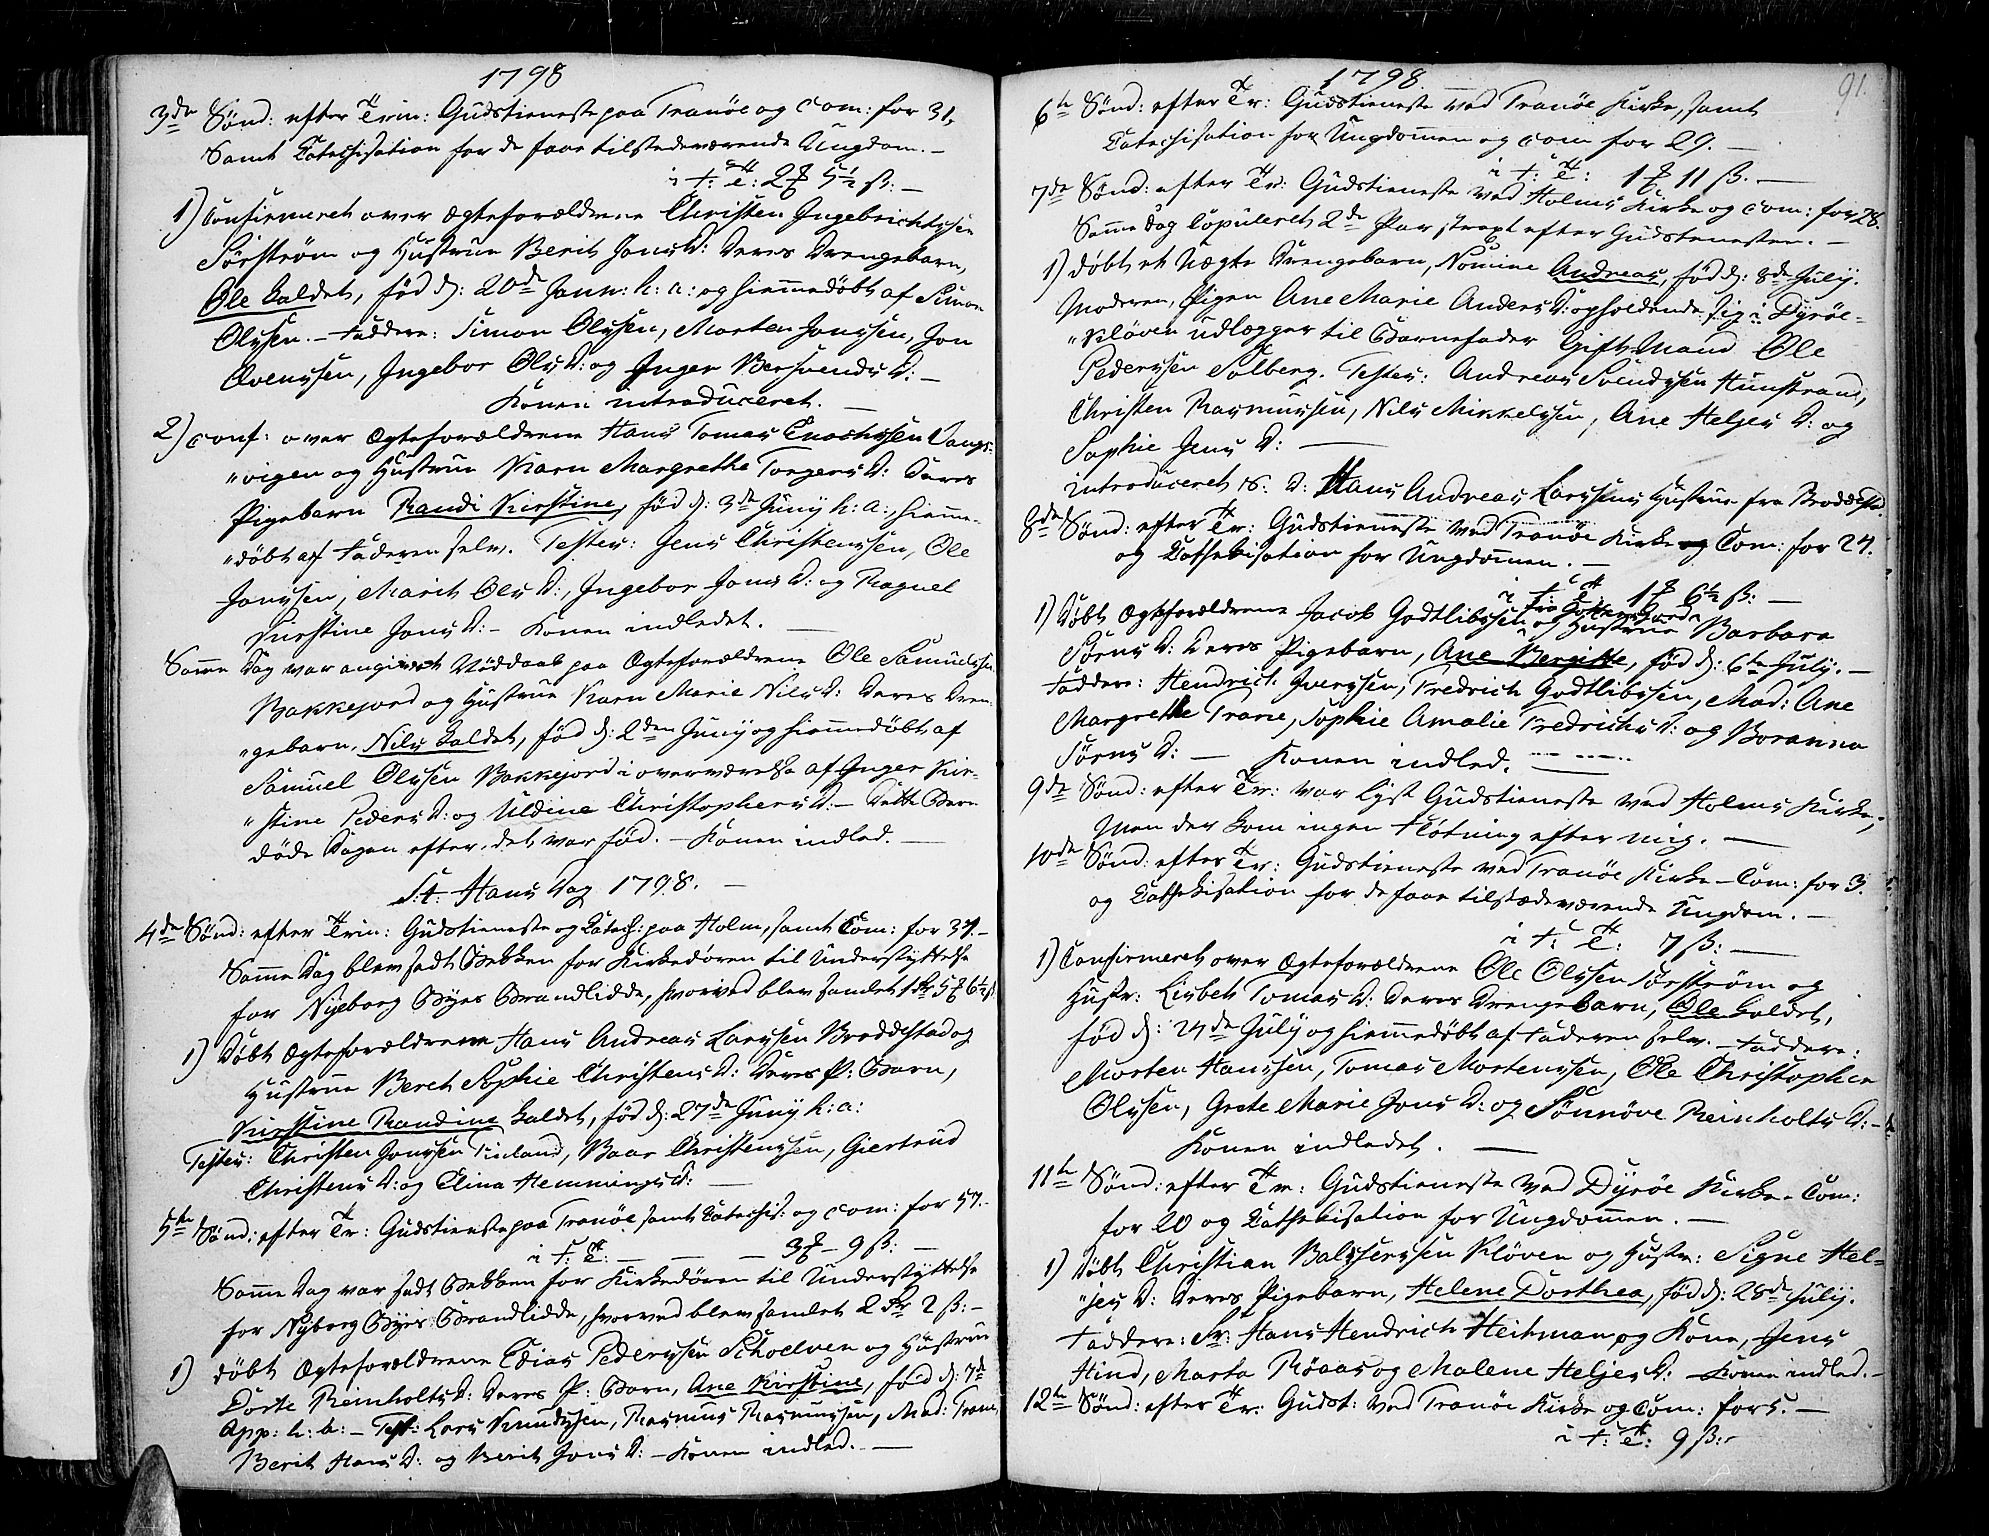 1798
3de Sønd: efter Trin: Gudstieneste paa Tranöe og Com: for 31,
Samt Catechisation for de faae tilstedeværende Ungdom. –
i t: T: 2 5½ ß: –
1) Confirmeret over Ægteforældrene Christen Ingebrichtsen
Sørstrøm og Hustrue Berit Jons D: Deres Drengebarn,
Ole kaldet, fød d: 20de Janu: h: a: og hiemmedøbt af Simon
Olsen. – Faddere: Simon Olsen, Morten Jonsen, Jon
Evensen, Ingebor Ols D: og Inger Bersvends D: –
Konen introduceret. –
2) Conf: over Ægteforældrene Hans Tomas Enochsen Tangs-
"vigen og Hustrue Karn Margrethe Torgers D: Deres
Pigebarn Randi Kirstine, fød d: 3de Juny h: a: hiemme-
"døbt af Faderen selv. Testes: Jens Christensen, Ole
Jonsen, Marit Ols D:, Ingebor Jons D: og Ragnel
Kirstine Jons D: – Konen indledet. –
Samme Dag var angivet Nøddaab paa Ægteforældrene Ole Samuelsen
Bakkejord og Hustrue Karn Marie Nils D: Deres Dren-
"gebarn, Nils kaldet, fød d: 2den Juny og hiemmedøbt af
Samuel Olsen Bakkejord i overværelse af Inger Kir-
"stine Peders D: og Uldine Christophers D: – Dette Barn
døde Dagen efter det var fød. – Konen indled. –
St. Hans Dag 1798. –
4de Sønd: efter Trin: Gudstieneste og Catech: paa Holm, samt Com: for 34. –
Samme Dag blev sadt Bekken for Kirkedøren til Understyttelse
for Nyeborg Byes Brandlidde, hvorved blev samlet 1 5 6½ ß.
1) Døbt Ægteforældrene Hans Andreas Larsen Broddestad og
Hustrue Beret Sophie Christens D: Deres P: Barn,
Kirstine Randine kaldet, fød d: 27de Juny h: a:
Testes: Christen Jonsen Finland, Baar Christensen, Giertrud
Christens D: og Elina Hemmings D: –
5te Sønd: efter Tr: Gudstieneste paa Tranöe samt Catechis: og Com: for 57. –
i t: T: – – – 3 – 9 ß: –
Samme Dag var sadt Bekken for Kirkedøren til Understyttelse
for Nyborg Byes Brandlidde, hvorved blev samlet 2 2 ß: –
1) døbt Ægteforældrene Edias Pedersen Schoelven og Hustrue
Dorte Reinholts D: Deres P: Barn, Ane Kirstine, fød d: 7de
App: h: a: – Test: Lars Knudsen, Rasmus Rasmussen, Mad: Trane,
Berit Hans D: og Berit Jons D: – Konen indled. –
1798.
91.
6te Sønd: efter Tr: Gudstieneste ved Tranöe Kirke, samt
Catechisation for Ungdommen og Com for 29. –
i t: T: 1 11 ß. –
7de Sønd: efter Tr: Gudstieneste ved Holms Kirke og Com: for 28.
Samme Dag Copuleret 2de Par strax efter Gudstienesten. –
1) døbt et Uægte Drengebarn, Nomine Andreas, fød d: 8de July.
Moderen, Pigen Ane Marie Anders D: opholdende sig i Dyröe-
"kløven udlægger til Barnefader Gift Mand Ole
Pedersen Solberg. Testes: Andreas Svendsen Hunstrand,
Christen Rasmussen, Nils Mikkelsen, Ane Heljes D: og
Sophie Jens D: –
introduceret s. D: Hans Andreas Larsens Hustrue fra Broddestad.
8de Sønd: efter Tr: Gudstieneste ved Tranöe Kirke og Com: for 24.
og Cathekisation for Ungdommen. –
i t: T: 1 6½ ß: –
1) Døbt Ægteforældrene Jacob Godtlibsen og Hustrue Barbara
Sørns D: Deres Pigebarn, Ane Bergitte, fød d: 6te July. –
Faddere: Hendrich Iversen, Fredrich Godtlibsen, Mad: Ane
Margrethe Trane, Sophie Amalie Fredrichs D: og Boranna
Sørns D: – Konen indled. –
9de Sønd: efter Tr: var lyst Gudstieneste ved Holms Kirke,
Men der kom ingen Fløtning efter mig. –
10de Sønd: efter Tr: Gudstieneste ved Tranöe Kirke – Com: for 3.
og Cathekisation for de faae tilstædeværende Ungdom. –
i t: T: 7 ß: –
1) Confirmeret over Ægteforældrene Ole Olsen Sørstrøm og
Hustr: Lisbet Tomas D: Deres Drengebarn, Ole kaldet,
fød d: 24de July og hiemmedøbt af Faderen selv. – Faddere:
Morten Hansen, Tomas Mortensen, Ole Christopher
Olsen, Grete Marie Jons D: og Sønnöve Reinholts D: –
Konen indledet. –
11te Sønd: efter Tr: Gudstieneste ved Dyröe Kirke – Com:
for 20 og Cathekisation for Ungdommen. –
1) døbt Christian Balsersen Kløven og Hustr: Signe Hel-
"jes D: Deres Pigebarn, Helene Dorthea, fød d: 28de July.
Faddere: Sr: Hans Hendrich Heitman og Kone, Jens
Hind, Marta Röaas og Malene Heljes D: – Konen indled. –
12te Sønd: efter Tr: Gudst: ved Tranöe Kirke og Com: for 5. –
i t: T: 9 ß: –